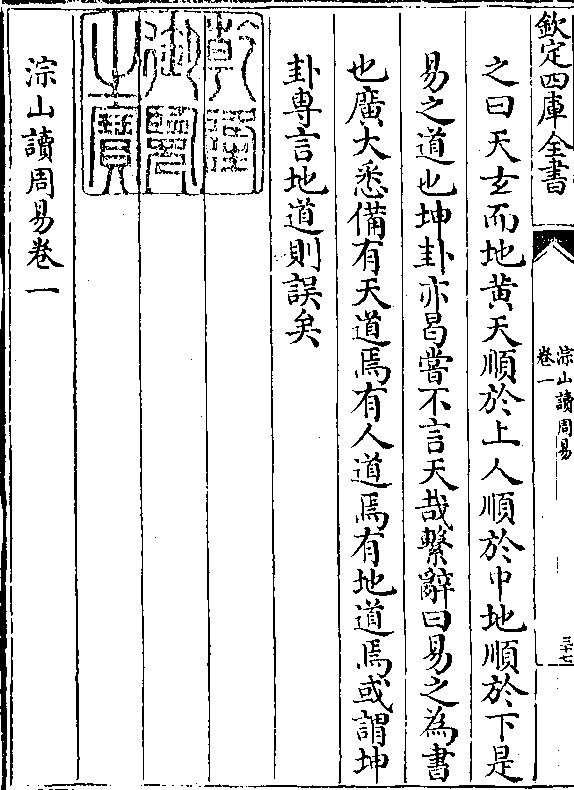 欽定四庫全書
淙山讀周易
卷一
三十七
之曰天玄而地黄天順於上人順於中地順於下是
易之道也坤卦亦曷嘗不言天哉繫辭曰易之為書
也廣大悉備有天道焉有人道焉有地道焉或謂坤
卦專言地道則誤矣
乾隆
御覽
之寶
淙山讀周易卷一